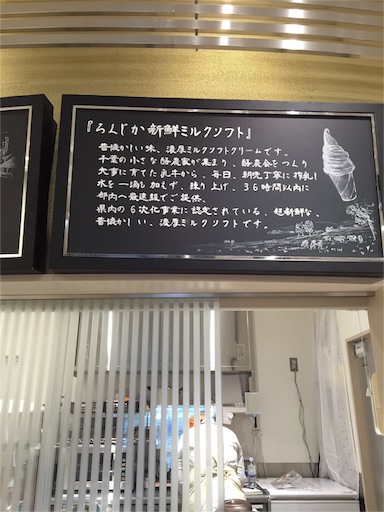 『ろくじか新鮮ミルクソフト』
昔懐かしい味、濃厚ミルクソフトクリームです。
千葉の小さな酪農家が集まり、酪農会をつくり
大事に育てた乳牛から、毎日、朝晩丁寧に搾乳!
水を一滴も加えず、練り上げ、36時間以内に
都内へ最速組でご提供。
県内の6次化事業に認定されている、超新鮮な
昔懐かしい、濃厚ミルクソフトです。